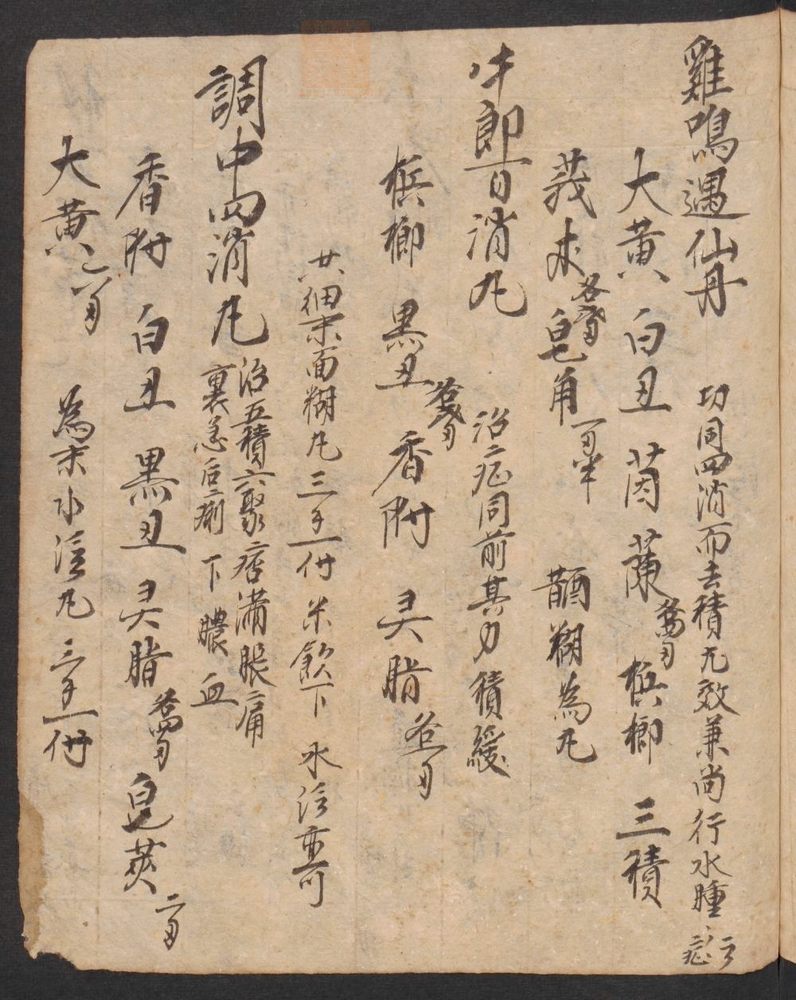 雞鳴遇仙丹 功同四消而去積尤效兼尚行水腫
大黃 白丑 茵蔯 梹榔 三積
莪朮 皂角 一兩半 醋糊為丸
牛郎百消丸 治症同前其力積緩
梹榔 黑丑 香附 灵脂 各一兩
共細末面糊丸 三錢一付 米飲下 水泛亦可
調中四消丸 治五積六聚痞滿脹痛
裏急后重痢 下膿血
香附 白丑 黑丑 灵脂 皂莢 二兩
大黃 二兩 為末水泛丸 三錢一付